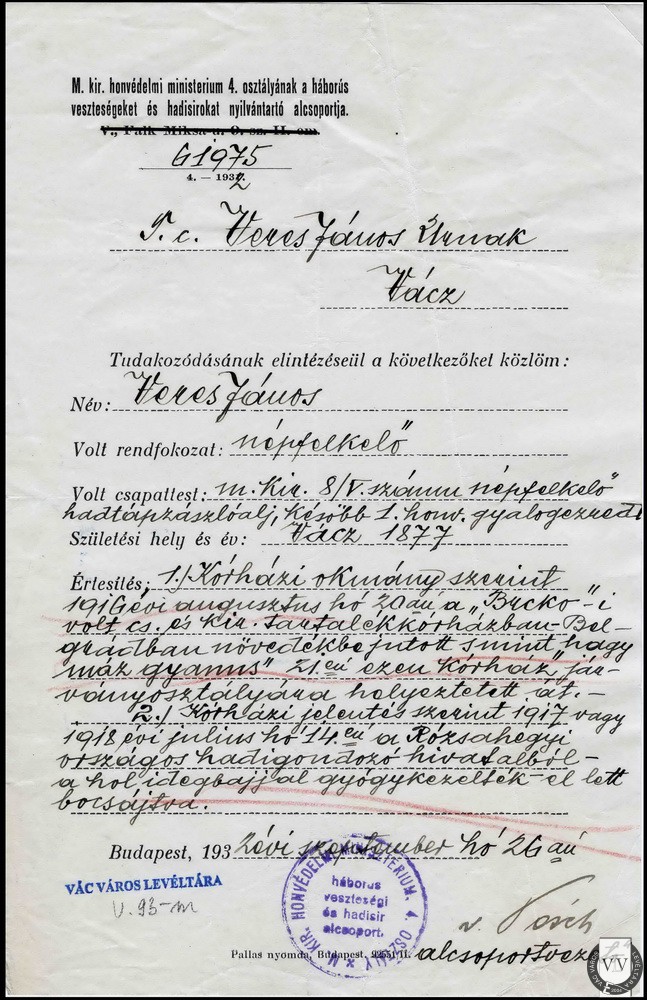 M. kir. honvédelmi ministerium 4. osztályának a háborús
veszteségeket és hadisirokat nyilvántartó alcsoportja.
V., Falk Miksa-u. 9. sz. II. em.
61975
4. — 1932
T. c. Veres János Urnak
Vácz
Tudakozódásának elintézéseül a következőket közlöm:
Név: Veres János
Volt rendfokozat: népfelkelő
Volt csapattest: m. kir. 8/V. számu népfelkelő
hadtápzászlóalj, később 1. honv. gyalogezred
Születési hely és év: Vácz 1877
Értesítés: 1./ Kórházi okmány szerint
1916 évi augusztus hó 20 án a „Brcko"-i
volt cs. és kir. tartalékkórházban Bel-
grádban növedékbe jutott s mint „hagy
máz gyanus" 21 én ezen kórház jár-
ványosztályára helyeztetett át. -
2./ Kórházi jelentés szerint 1917 vagy
1918 évi július hó 14 én a Rózsahegyi
országos hadigondozó hivatalból -
a hol idegbajjal gyógykezelték - el lett
bocsájtva.
Budapest, 1932 évi szeptember hó 26 án
VÁC VÁROS LEVÉLTÁRA
V. 93-m
M. KIR. HONVÉDELMI MINISTERIUM. 4. OSZTÁLY
háborus
veszteségi
és hadisir
alcsoport.
v. Posch
alcsoportvez
Pallas nyomda, Budapest.
VÁC VÁROS LEVÉLTÁRA
VVL